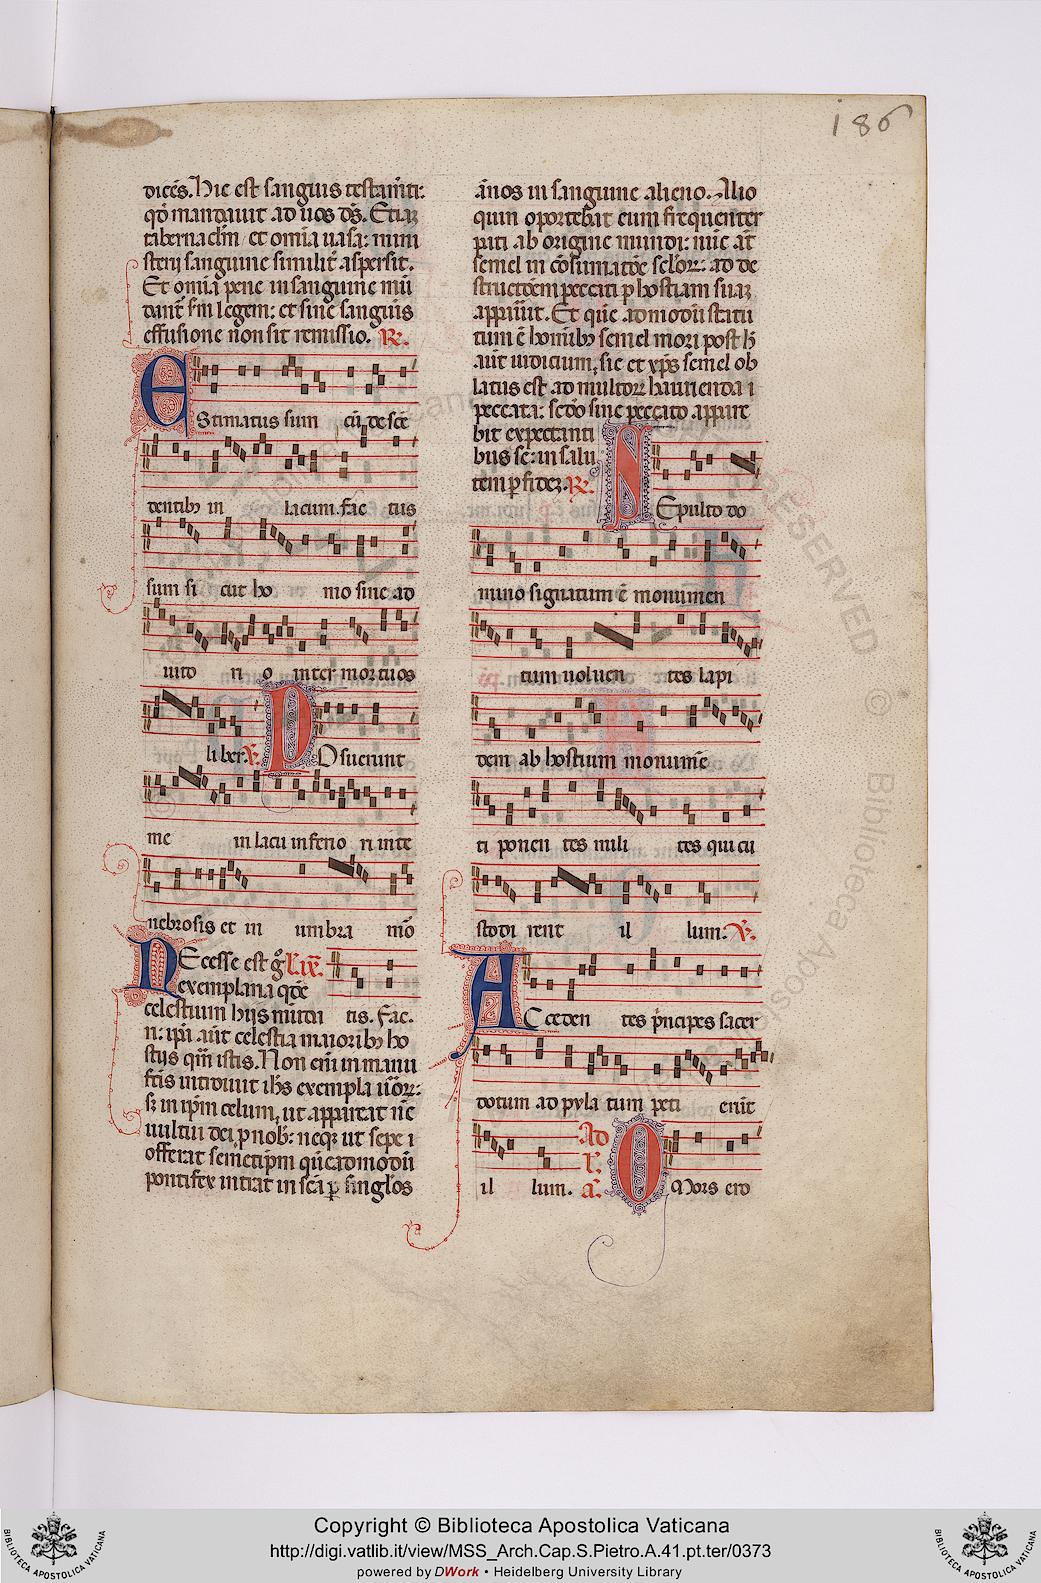 186
dicēs. Hic est sanguis testam̄ti:
qđ mandauit ad uos dꝰs. Etiaꝫ
tabernac̄lm et om̄ia uasa: mini
sterij sanguine similit̄ aspersit.
Et om̄ia pene in sanguine mū
dant̄ s̄m legem: et sine sanguis
effusione non fit remissio. R̄.
EStimatus sum cū desce
dentibꝰ in lacum. fac tus
sum si cut ho mo sine ad
iuto ri o inter mortuos
liber. V̄. POsuerunt
me in lacu inferio ri in te
nebrosis et in umbra mor̄
NEcesse est g̊ L. ix.
exemplaria qđe
celestium hijs mūdari tis. Fac.
ri: ip̄i aūt celestia meliorībꝰ ho
stijs qm̄ istis. Non eni in manu
f̄cis introiuit ih̄s exempla uōrꝝ:
sꝫ in ip̄m celum, ut appareat nc̄
uultui dei p nob̄: neqꝫ ut sepe i
offerat semetip̄m q̄ēadmodū
pontifex intrat in sc̄a ꝑ singl̄os
ānos in sanguine alieno. Alio
quin oportebat eum frequenter
pati ab origine mundi: nūc at̄
semel in cōsumatōe sc̄lorꝝ: ad de
structōem peccati p hostiam suaꝫ
apparuit. Et que admodū statu
tum ē homībꝰ semel mori post h̄
aūt iudicium, sic et xp̄s semel ob
latus est ad multorꝝ haurienda i
peccata: sc̄do sine peccato appare
bit expectanti
bus se: in salu
tem p fideꝫ. R̄.
SEpulto do
mino signatum ē monumen
tum uoluen tes lapi
dem ab hostium monumē
ti ponen tes mili tes qui cu
stodi rent il lum. V̄.
ACceden tes p̄ncipes sacer
dotum ad pyla tum peti erūt
il lum. Ad L. a. O Mors ero
RESERVED
© Biblioteca Apostolica
Copyright © Biblioteca Apostolica Vaticana
http://digi.vatlib.it/view/MSS_Arch.Cap.S.Pietro.A.41.pt.ter/0373
powered by DWork • Heidelberg University Library
BIBLIOTECA APOSTOLICA VATICANA
BIBLIOTECA APOSTOLICA VATICANA